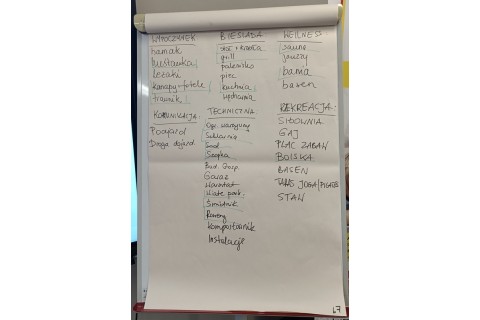 WYPOCZYNEK
hamak
huśtawka
leżaki
kanapy + fotele
trawnik
KOMUNIKACJA
Podjazd
Droga dojazd.
BIESIADA
stół + krzesła
grill
palenisko
piec
kuchnia
wędzarnia
TECHNICZNA
Ogr. warzywny
Szklarnia
Sad
Szopka
Bud. Gosp.
Garaż
Warsztat
Wiata park.
Śmietnik
Rowery
Kompostownik
Instalacje
WELLNESS
sauna
jacuzzi
bania
basen
REKREACJA
SIŁOWNIA
GAJ
PLAC ZABAW
BOISKA
BASEN
TARAS JOGA/PILATES
STAW